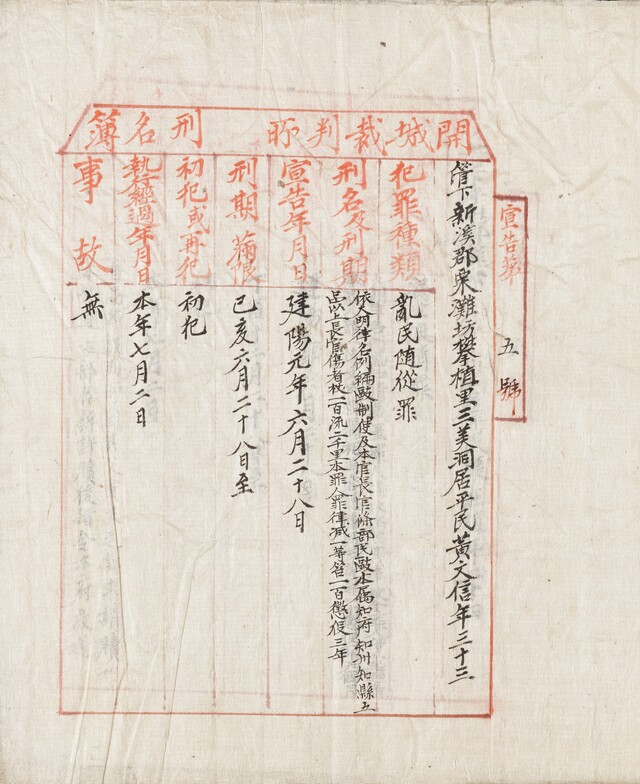 宣告第 五號
開城裁判所 刑名簿
管下新溪郡栗灘坊攀植里三美洞居平民黃文信年三十三
犯罪種類
亂民隨從罪
刑名及刑期
依大明律名例編毆制使及本官長官條部民毆本屬知府知州知縣五
品以上長官傷者杖一百流二千里本罪人罪律減一等笞一百懲役三年
宣告年月日
建陽元年六月二十八日
刑期滿限
己亥六月二十八日至
初犯或再犯
初犯
執行經過年月日
本年七月二日
事故
無